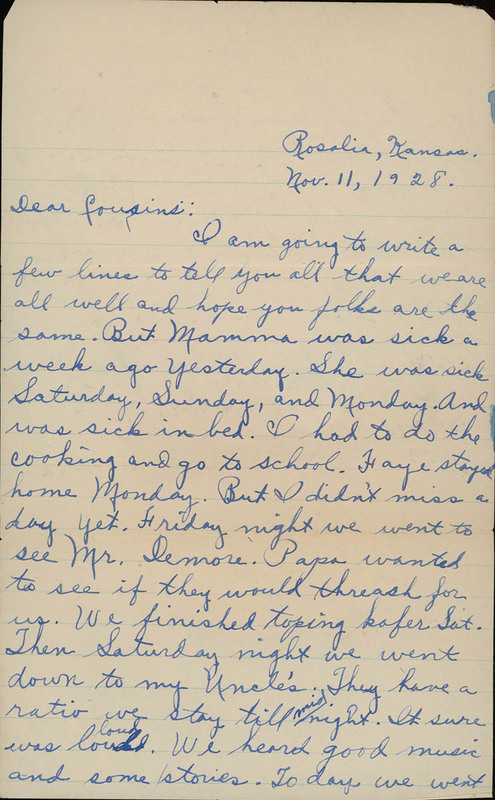 Rosalia, Kansas.
Nov. 11, 1928.
Dear Cousins:
I am going to write a
few lines to tell you all that we are
all well and hope you folks are the
same. But Mamma was sick a
week ago yesterday. She was sick
Saturday, Sunday, and Monday. And
was sick in bed. I had to do the
cooking and go to school. Faye stayed
home Monday. But I didn't miss a
day yet. Friday night we went to
see Mr. Demore. Papa wanted
to see if they would threash for
us. We finished toping kafer Sat.
Then Saturday night we went
down to my Uncle's. They have a
ratio we stay till mid night. It sure
was loud. We heard good music
and some stories. To day we went